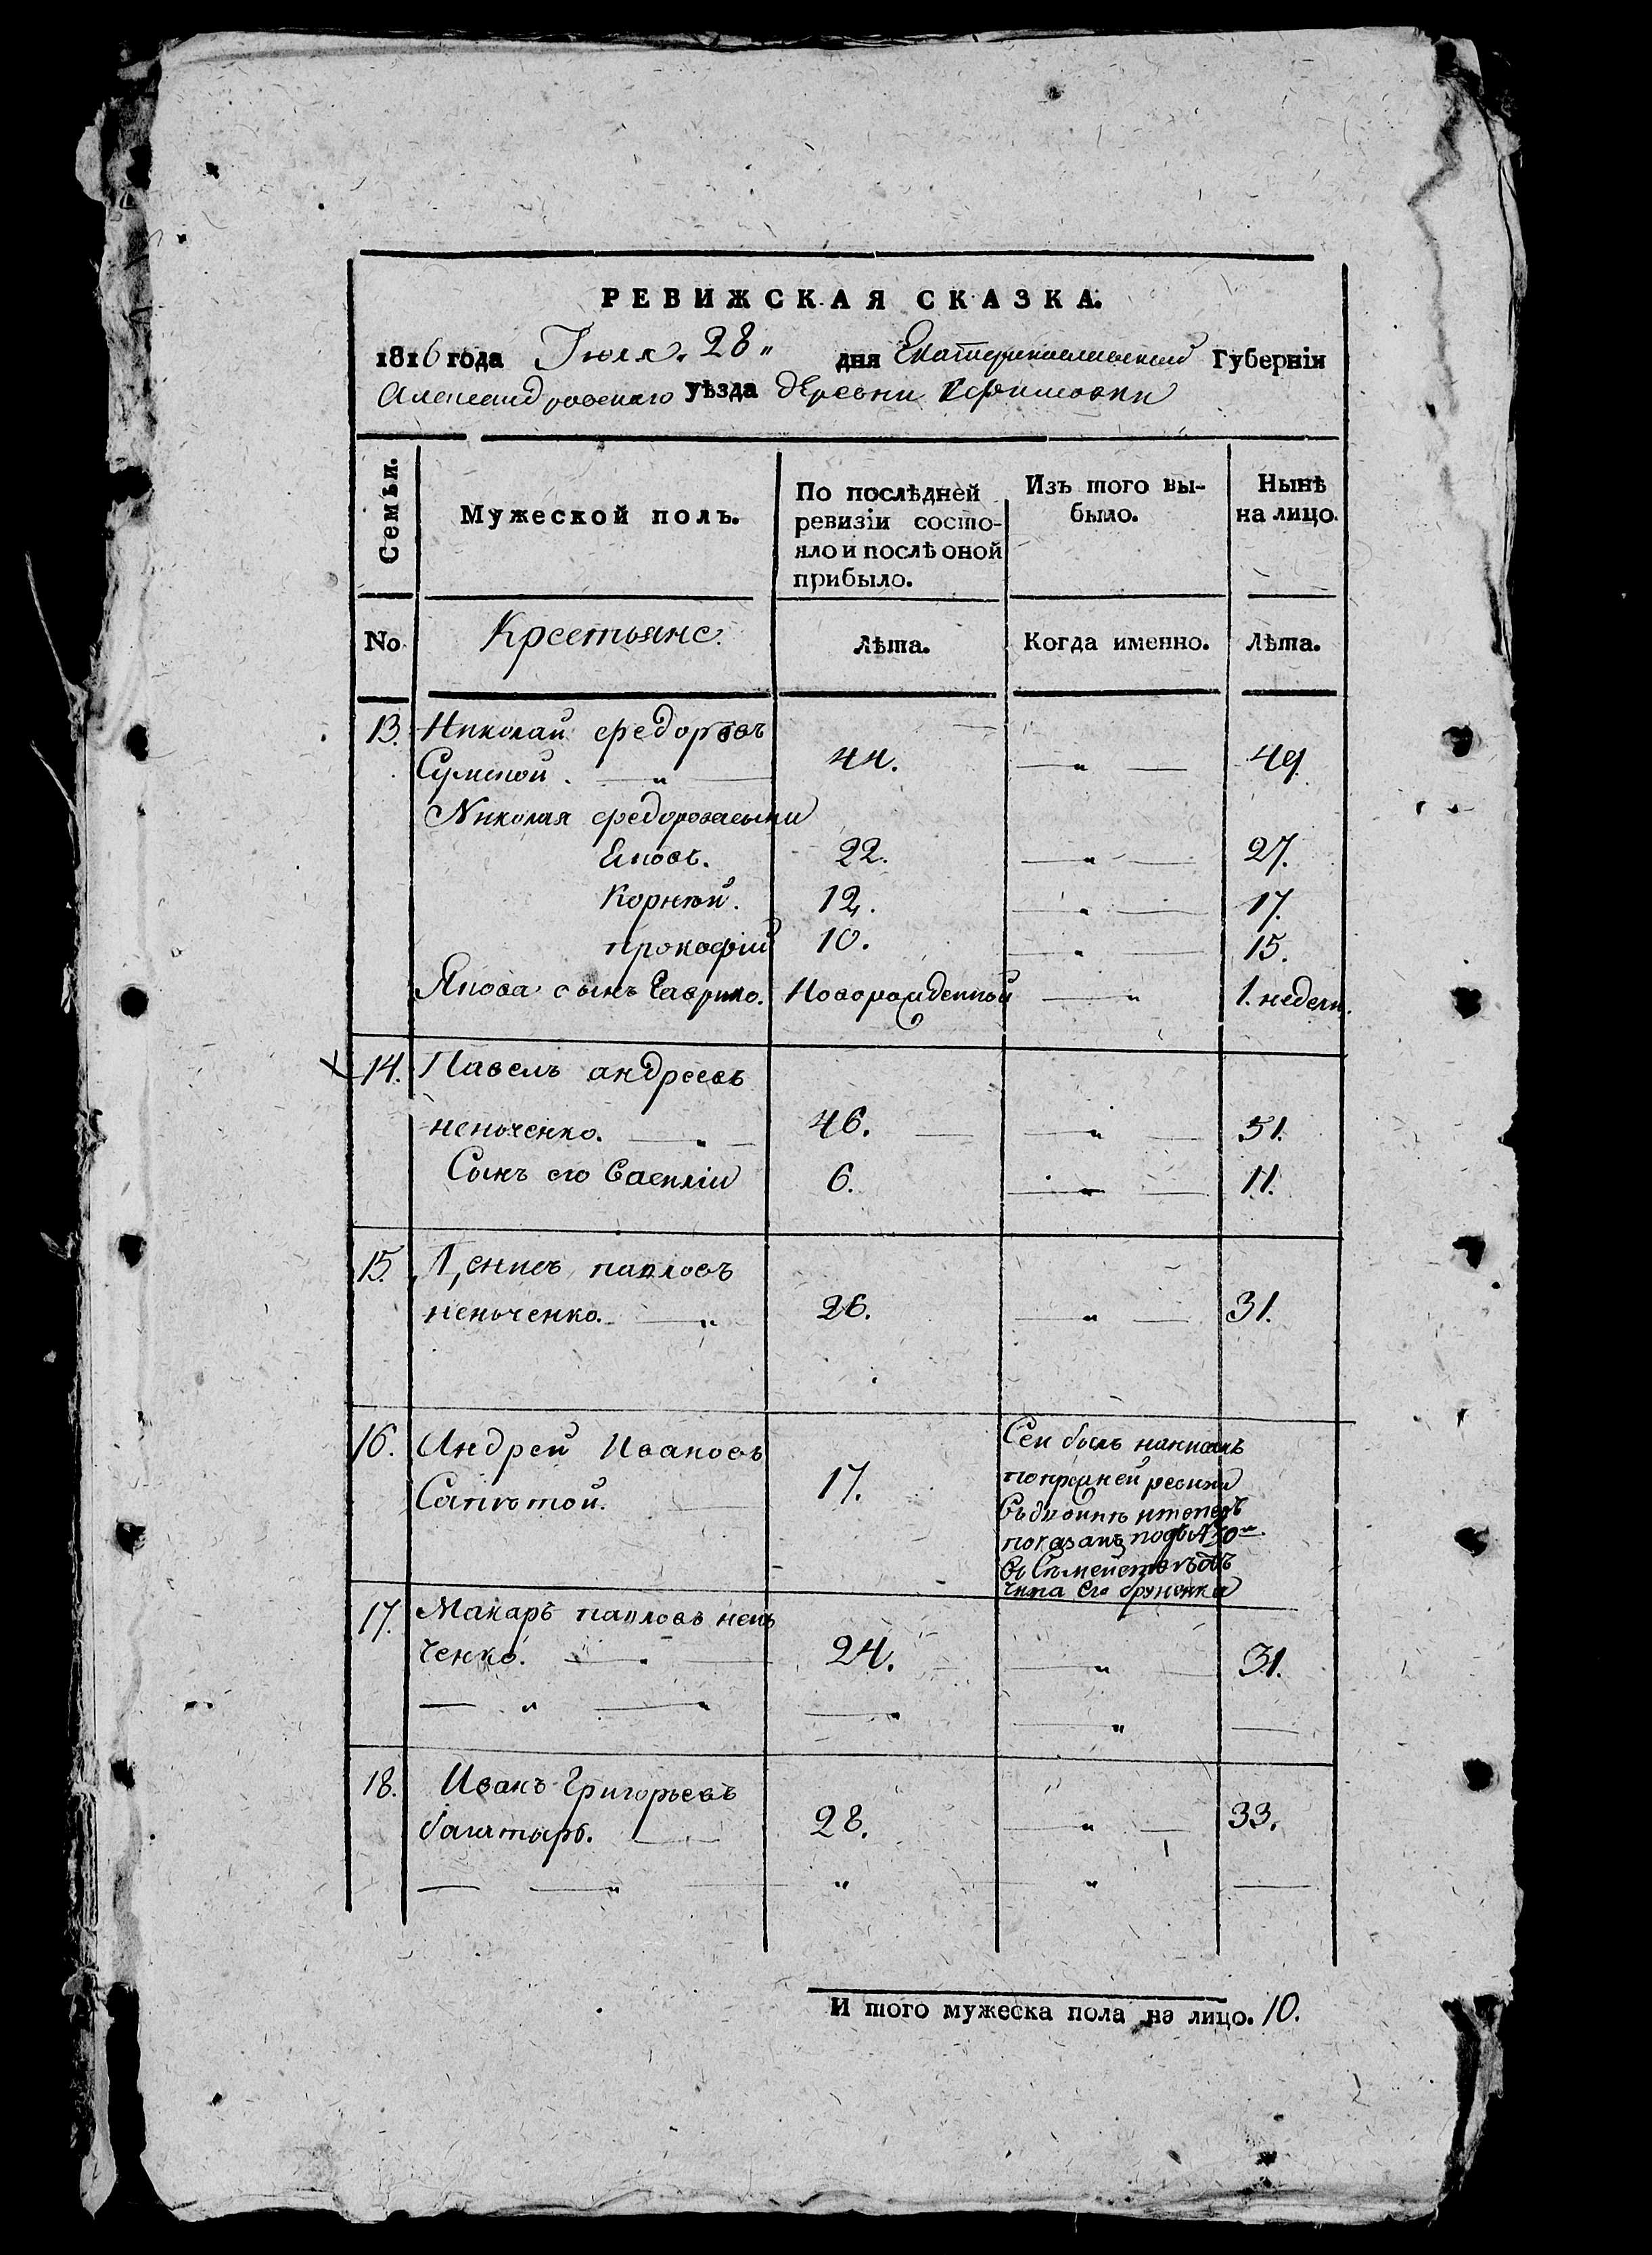 РЕВИЖСКАЯ СКАЗКА.
1816 года Іюля. 28 " дня Екатеринославской Губерніи
Александровскаго уѣзда деревни
Семьи.
Мужеской полъ.
По послѣдней ревизіи состо-
яло и послѣ оной
прибыло.
Изъ того вы-
было.
Нынѣ
на лицо.
No
Крестьяне.
Лѣта.
Когда именно.
Лѣта.
13. Николай федоровъ
Сумской. — " — 44. — " — 49.
Николая федорова сыни
Яковъ. 22. — " — 27.
Корнѣй. 12. — " — 17.
прокофій 10. — " — 15.
Якова сынъ Гаврило. Новорожденной — " 1. недели.
14. Павелъ андреевъ
неньченко. — " — 46. — — " — 51.
Сынъ его Василій 6. — " — 11.
15. Денисъ павловъ
неньченко. — " 26. — " — 31.
16. Андрей Ивановъ
17.
Сей былъ написанъ
попрежней ревизіи
показанъ
17. Макаръ павловъ нень
ченко. — " — 24. — " — 31.
— " — " — " — " —
18. Иванъ Григорьевъ
баштыръ. — 28. — " — 33.
— — " — " " —
И того мужеска пола на лицо. 10.